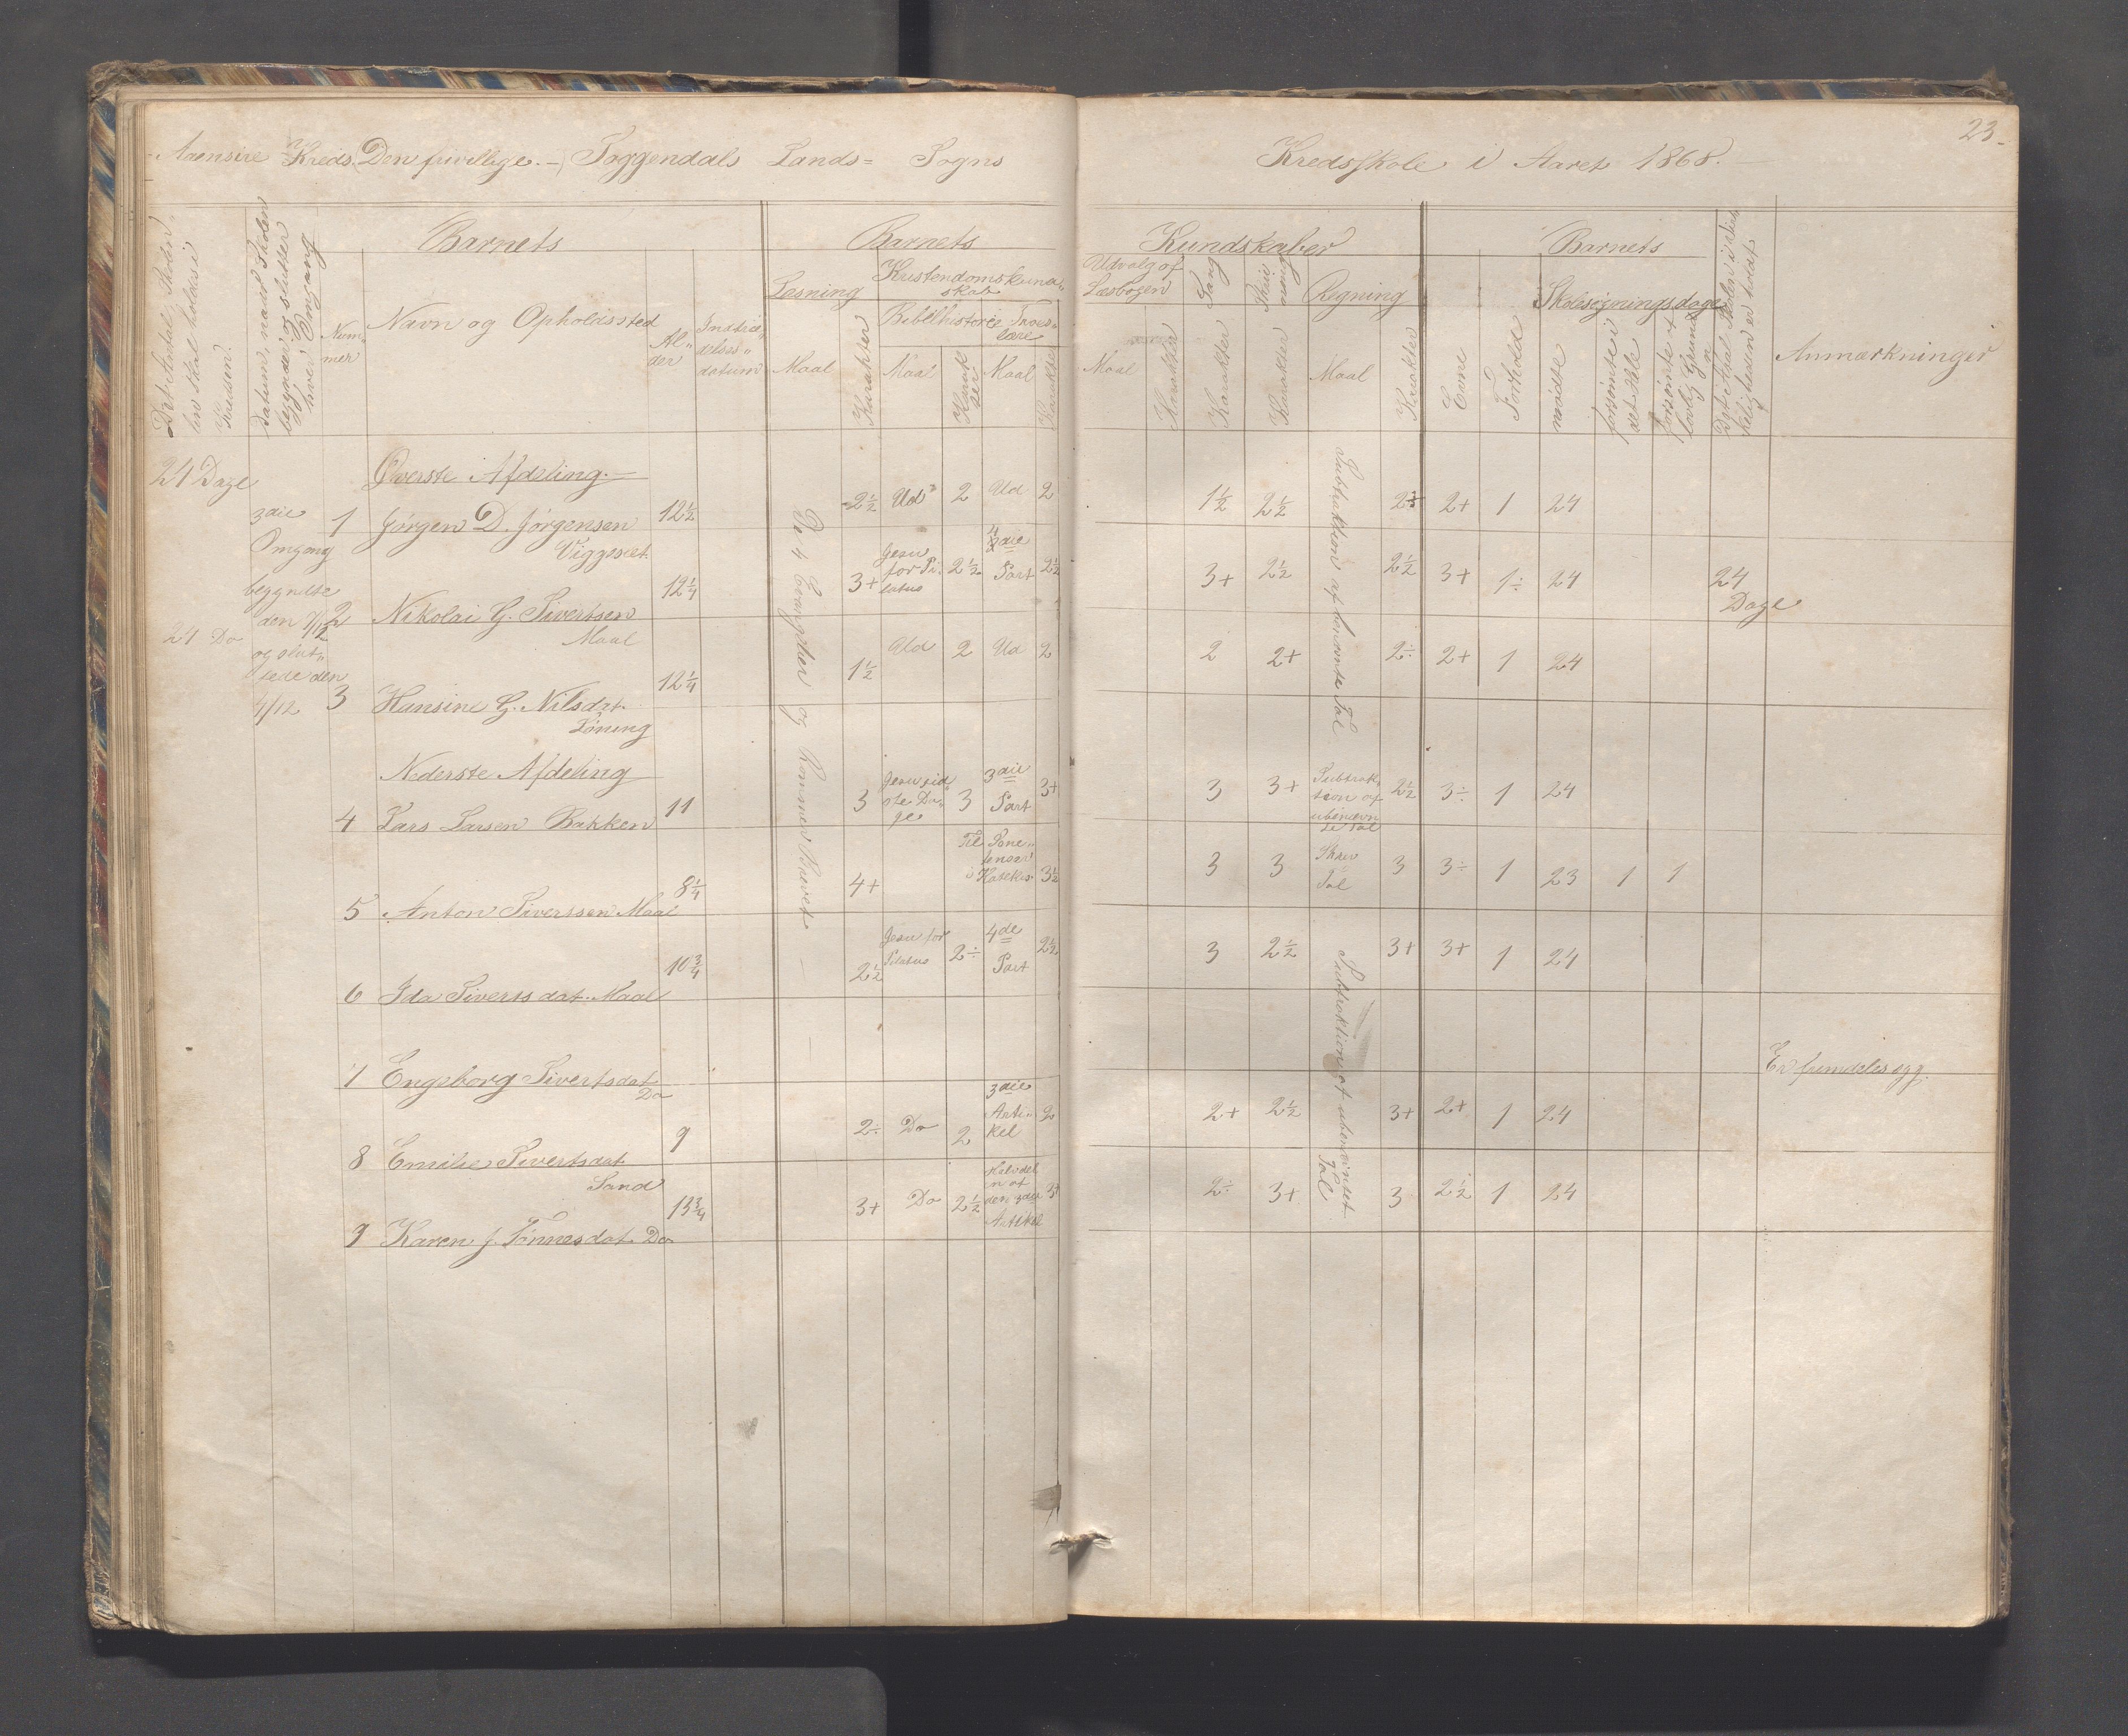 23
Kreds Den frivillige. Soggendals Lands= Sogns
Kredsskole i Aaret 1868.
Barnets
Barnets
Kundskaber
Barnets
Datum, naar Skolen begynder og slutter hver Omgang
Nummer
Navn og Opholdssted
Alder
Læsning
Maal
Karakter
Kristendomskundskab
Bibelhistorie
Troeslære
Maal
Karakter
Maal
Karakter
Udvalg af Læsebogen
Maal
Karakter
Sang
Karakter
Skrivning
Karakter
Regning
Maal
Karakter
Evne
Forhold
Skolesøgningsdage
mødte
forsømte i det Hele
forsømte af lovlig Grund
Anmærkninger
De 4 Evangelier og Romerne Brevet
Subtraktion af benævnte Tal
24 Dage
3die Omgang begyndte den
og sluttede den 4/12
24 Do
Øverste Afdeling.
1 Jørgen D. Jørgensen 12½ 2½ Ud 2 Ud 2 1½ 2½ 2+ 1 24
2 Nikolai G. Sivertsen Maal 12¼ 3+ Jesu for Pilatus 2½ Part 2½ 3+ 2½ 2½ 3+ 1÷ 24 24 Dage
3 Hansine G. Nilsdat. 12¼ 1½ Ud 2 Ud 2 2 2+ 2÷ 2+ 1 24
Nederste Afdeling
4 Lars Larsen Bakken 11 3 Jesu sidste Dage 3 3die Part 3+ 3 3+ Subtraktion af ubenævnte Tal 2½ 3÷ 1 24
5 Anton Siverssen Maal 8¼ 4+ Til 3½ 3 3 Tal 3 3÷ 1 23 1 1
6 Ida Sivertsdat. Maal 10¾ 2½ Jesu for Pilatus 2÷ 4de Part 2½ 3 2½ 3+ 3+ 1 24
Subtraktion af ubenævnte Tal
7 Engeborg Sivertsdat Do
8 Emilie Sivertsdat Sand 9 2÷ Do 2 3die Artikel 2 2+ 2½ 3+ 2+ 1 24
9 Karen J. Tønnesdat. Do 13¾ 3+ Do 2½ Halvdelen af den 3die Artikel 3+ 2÷ 3+ 3 2½ 1 24